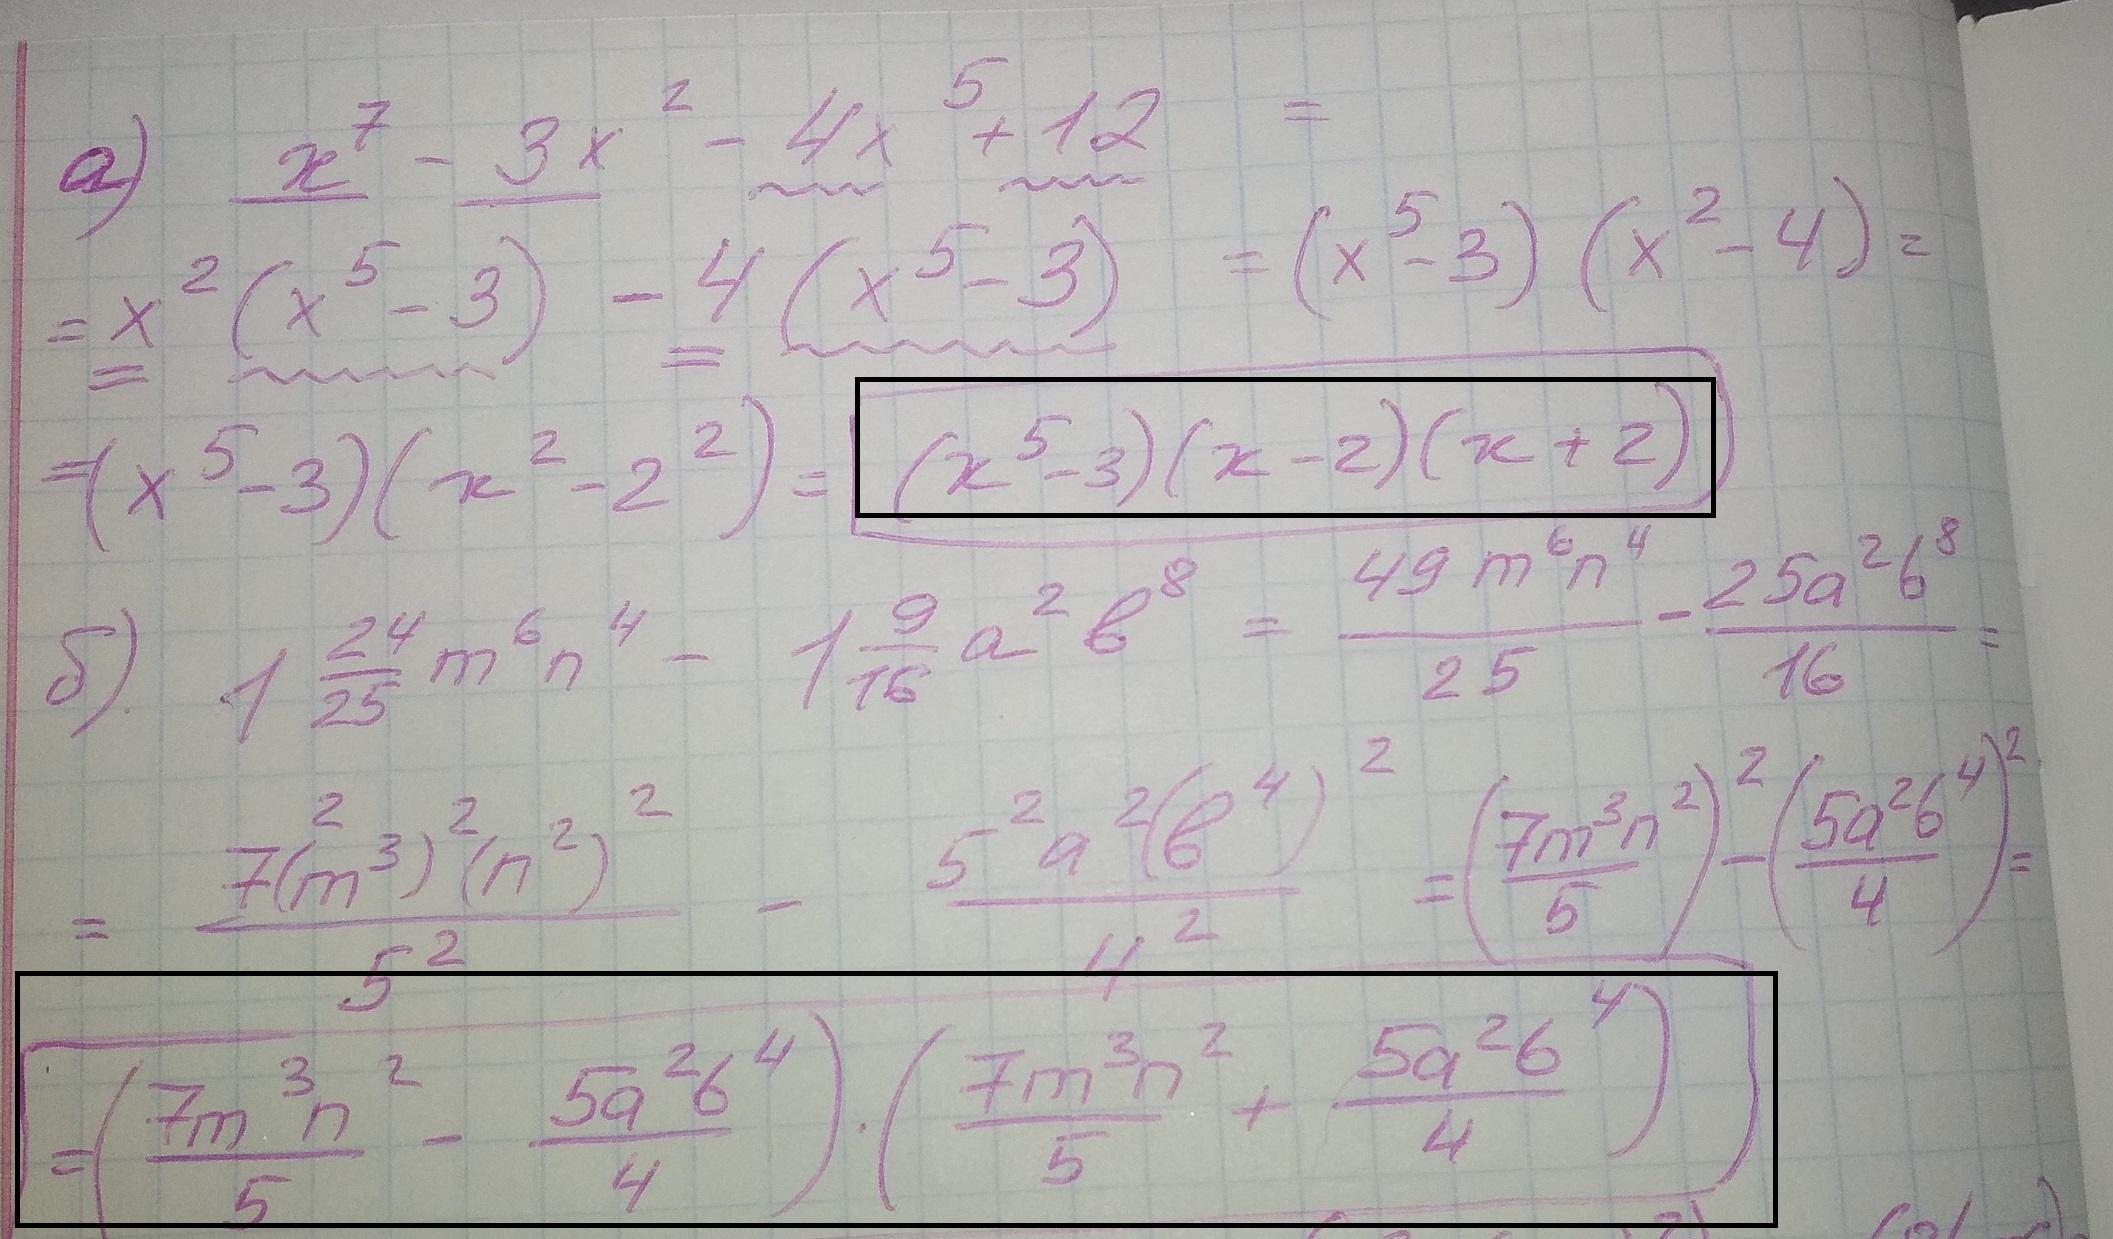 а) x⁷ - 3x² - 4x⁵ + 12 =
= x²(x⁵ - 3) - 4(x⁵ - 3) = (x⁵ - 3)(x² - 4) =
= (x⁵ - 3)(x² - 2²) = (x⁵ - 3)(x - 2)(x + 2)
б). 1 24/25 m⁶n⁴ - 1 9/16 a²b⁸ = 49m⁶n⁴/25 - 25a²b⁸/16 =
= 7²(m³)²(n²)²/5² - 5²a²(b⁴)²/4² = (7m³n²/5)² - (5a²b⁴/4)² =
= (7m³n²/5 - 5a²b⁴/4) · (7m³n²/5 + 5a²b⁴/4)